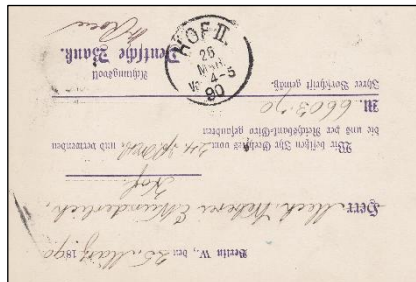 Berlin W., den 25. März 1890.
Herr Mech. Weberei E. Wunderlich,
Hof.
Wir besitzen Ihr Geehrtes vom 24. und verwenden
die uns per Reichsbank-Giro gesandten
M. 6603.70
Ihrer Vorschrift gemäß.
Achtungsvoll
Deutsche Bank.
HOF II.
25
MRZ
4-5
90